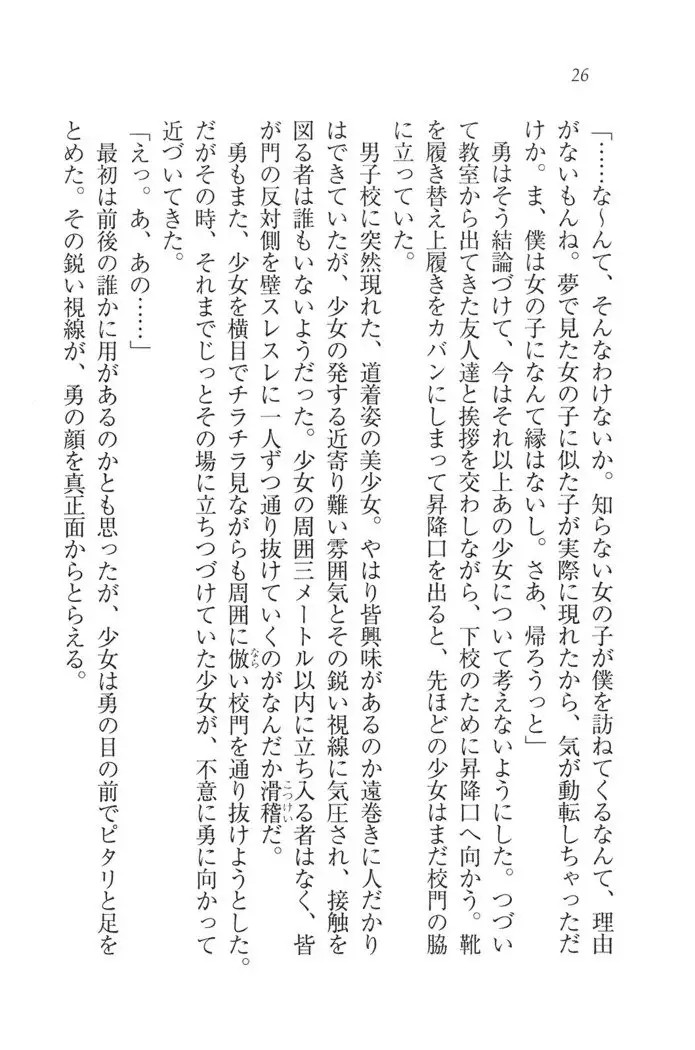 26
「……な～んて、そんなわけないか。知らない女の子が僕を訪ねてくるなんて、理由
がないもんね。夢で見た女の子に似た子が実際に現れたから、気が動転しちゃっただ
けか。ま、僕は女の子になんて縁はないし。さあ、帰ろうっと」
勇はそう結論づけて、今はそれ以上あの少女について考えないようにした。つづい
て教室から出てきた友人達と挨拶を交わしながら、下校のために昇降口へ向かう。靴
を履き替え上履きをカバンにしまって昇降口を出ると、先ほどの少女はまだ校門の脇
に立っていた。
男子校に突然現れた、道着姿の美少女。やはり皆興味があるのか遠巻きに人だかり
はできていたが、少女の発する近寄り難い雰囲気とその鋭い視線に気圧され、接触を
図る者は誰もいないようだった。少女の周囲三メートル以内に立ち入る者はなく、皆
が門の反対側を壁スレスレに一人ずつ通り抜けていくのがなんだか滑稽だ。
こっけい
勇もまた、少女を横目でチラチラ見ながらも周囲に倣い校門を通り抜けようとした。
なら
だがその時、それまでじっとその場に立ちつづけていた少女が、不意に勇に向かって
近づいてきた。
「えっ。あ、あの……」
最初は前後の誰かに用があるのかとも思ったが、少女は勇の目の前でピタリと足を
とめた。その鋭い視線が、勇の顔を真正面からとらえる。